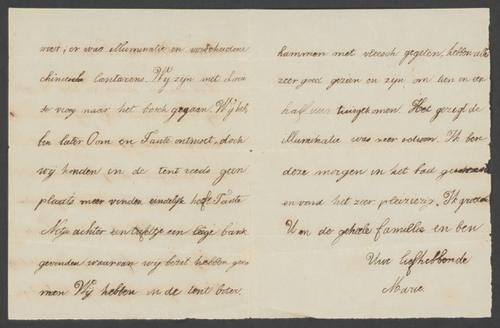 weer; er was illuminatie en verscheidene
chineesche lantarens. Wij zijn met
de naar het bosch gegaan. Wij heb
ben later Oom en Tante ontmoet, doch
wij konden in de tent reeds geen
plaats meer vinden eindelijk heeft Tante
achter een tafeltje een lege bank
gevonden waarvan wij bezet hebben geno
men Wij hebben in de tent boter.
hammen met vleesch gegeten, hebben alles
zeer goed gezien en zijn om tien en een
half uur thuisgekomen. Het gezigt der
illuminatie was zeer schoon. Ik ben
deze morgen in het bad geweest
en vond het zeer pleizierig. Ik groet
U en de gehele famielie en ben
Uwe liefhebbende
Marie.